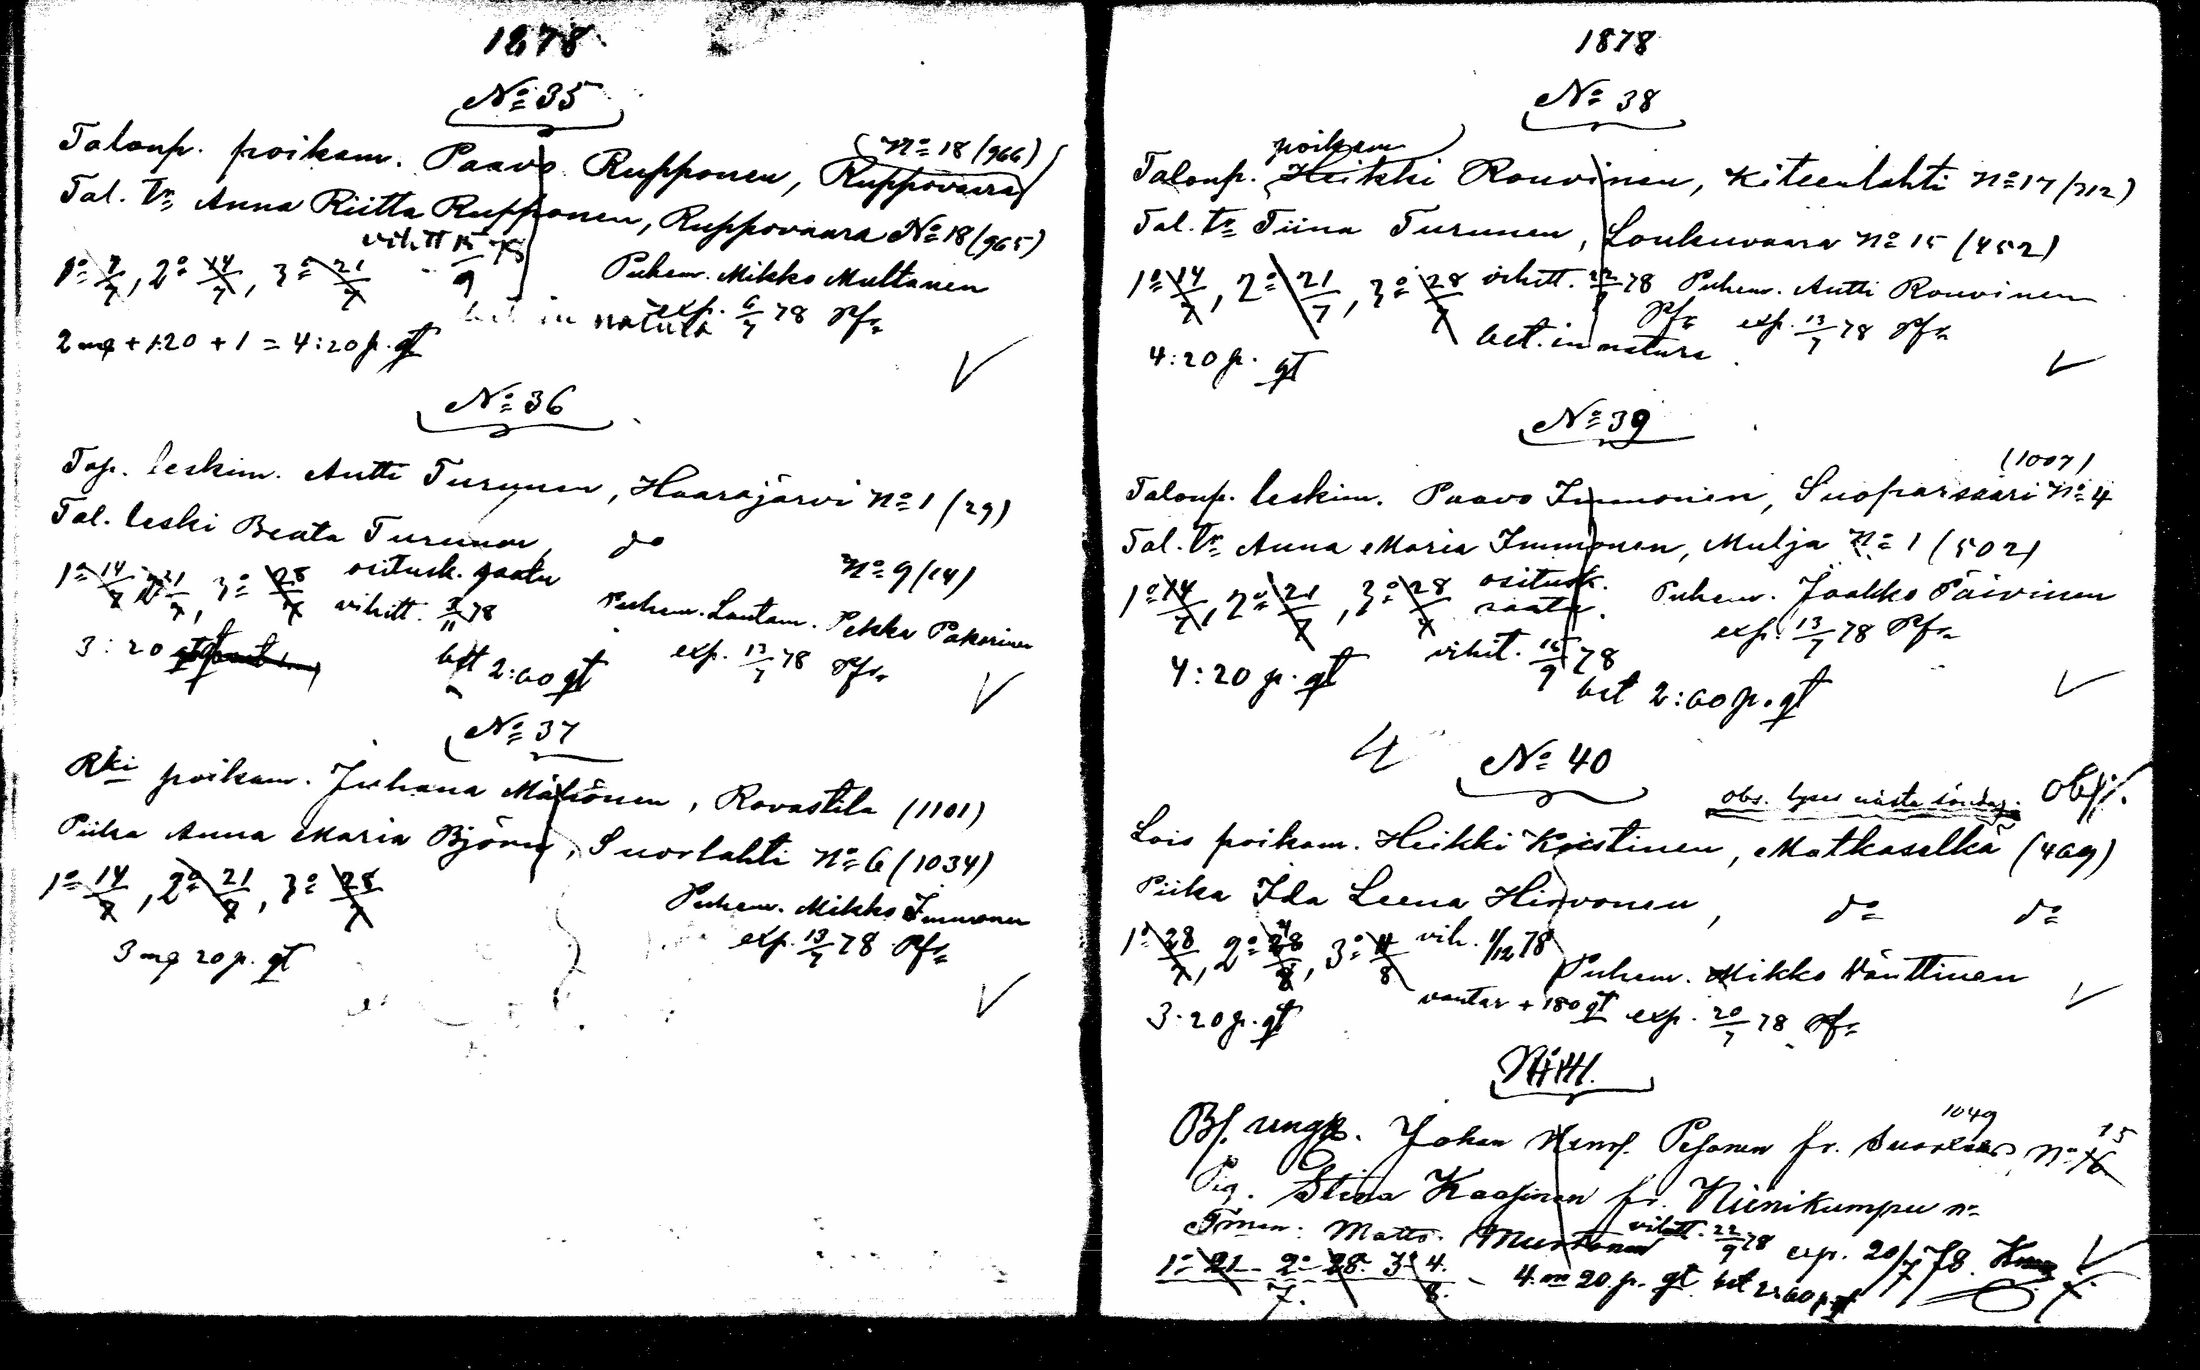 1878
No 35
Taloup. poikam. Paavo Rupponen, Ruppovaara No 18 (966)
Tal. tr. Anna Riitta Rupponen, Ruppovaara No 18 (965)
vihitt 15/9 78
1o 7/7, 2o 14/7, 3o 21/7 Puhem. Mikko Multanen
bet in natura exp. 6/7 78 Pf
2 mq + 1.20 + 1 = 4:20 p. gt
No 36
Tap. leskim. Antti Turunen, Haarajärvi No 1 (29)
Tal. leski Beata Turunen, do No 9 (14)
1o 14/7 21/7, 3o 28/7 ositusk. saatu
vihitt. 78 Puhem. Lautam. Pekka Pakarinen
3:20 bet 2:60 gt exp. 13/7 78 Pf
No 37
Rki poikam. Juhana Mähönen, Rovastila (1101)
Piika Anna Maria Björn, Suorlahti No 6 (1034)
1o 14/7, 2o 21/7, 3o 28/7 Puhem. Mikko Immonen
exp. 13/7 78 Pf
3 mq 20 p. gt
1878
No 38
poikam
Taloup. Heikki Rouvinen, Kiteenlahti No 17 (712)
Tal. tr Tiina Turunen, Loukuvaara No 15 (452)
1o 14/7, 2o 21/7, 3o 28/7 vihitt. 78 Puhem. Antti Rouvinen
Pf exp. 13/7 78 Pf
4:20 p. gt bet. in natura
No 39
(1007)
Taloup. leskim. Paavo Immonen, Suoparsaari No 4
Tal. tr Anna Maria Immonen, Mulja No 1 (502)
1o 14/7, 2o 21/7, 3o 28/7 ositusk. saatu. Puhem. Jaakko Päivinen
exp. 13/7 78 Pf
4:20 p. gt vihit. 15/9 78 bet 2:60 p. gt
No 40
obs. lyses nästa söndag. Obs!
Lois poikam. Heikki Kristinen, Matkaselkä (469)
Piika Ida Leena Hirvonen, do do
1o 28/7, 2o 4/8, 3o 11/8 vih. 1/12 78
Puhem. Mikko Wänttinen
3.20 p. gt vantar + 180 gt exp. 20/7 78 Pf
No 41.
1049
Bf. ungk. Johan Henr. Pesonen fr. No 15
Pig. Stina Kaasinen fr. Niinikumpu no
Tman: Matts Mustonen vihitt. 22/9 78 exp. 20/7 78.
1o 21. 2o 28. 3o 4. 4 m 20 p. gt bet 2:60 p gt
7. 8.